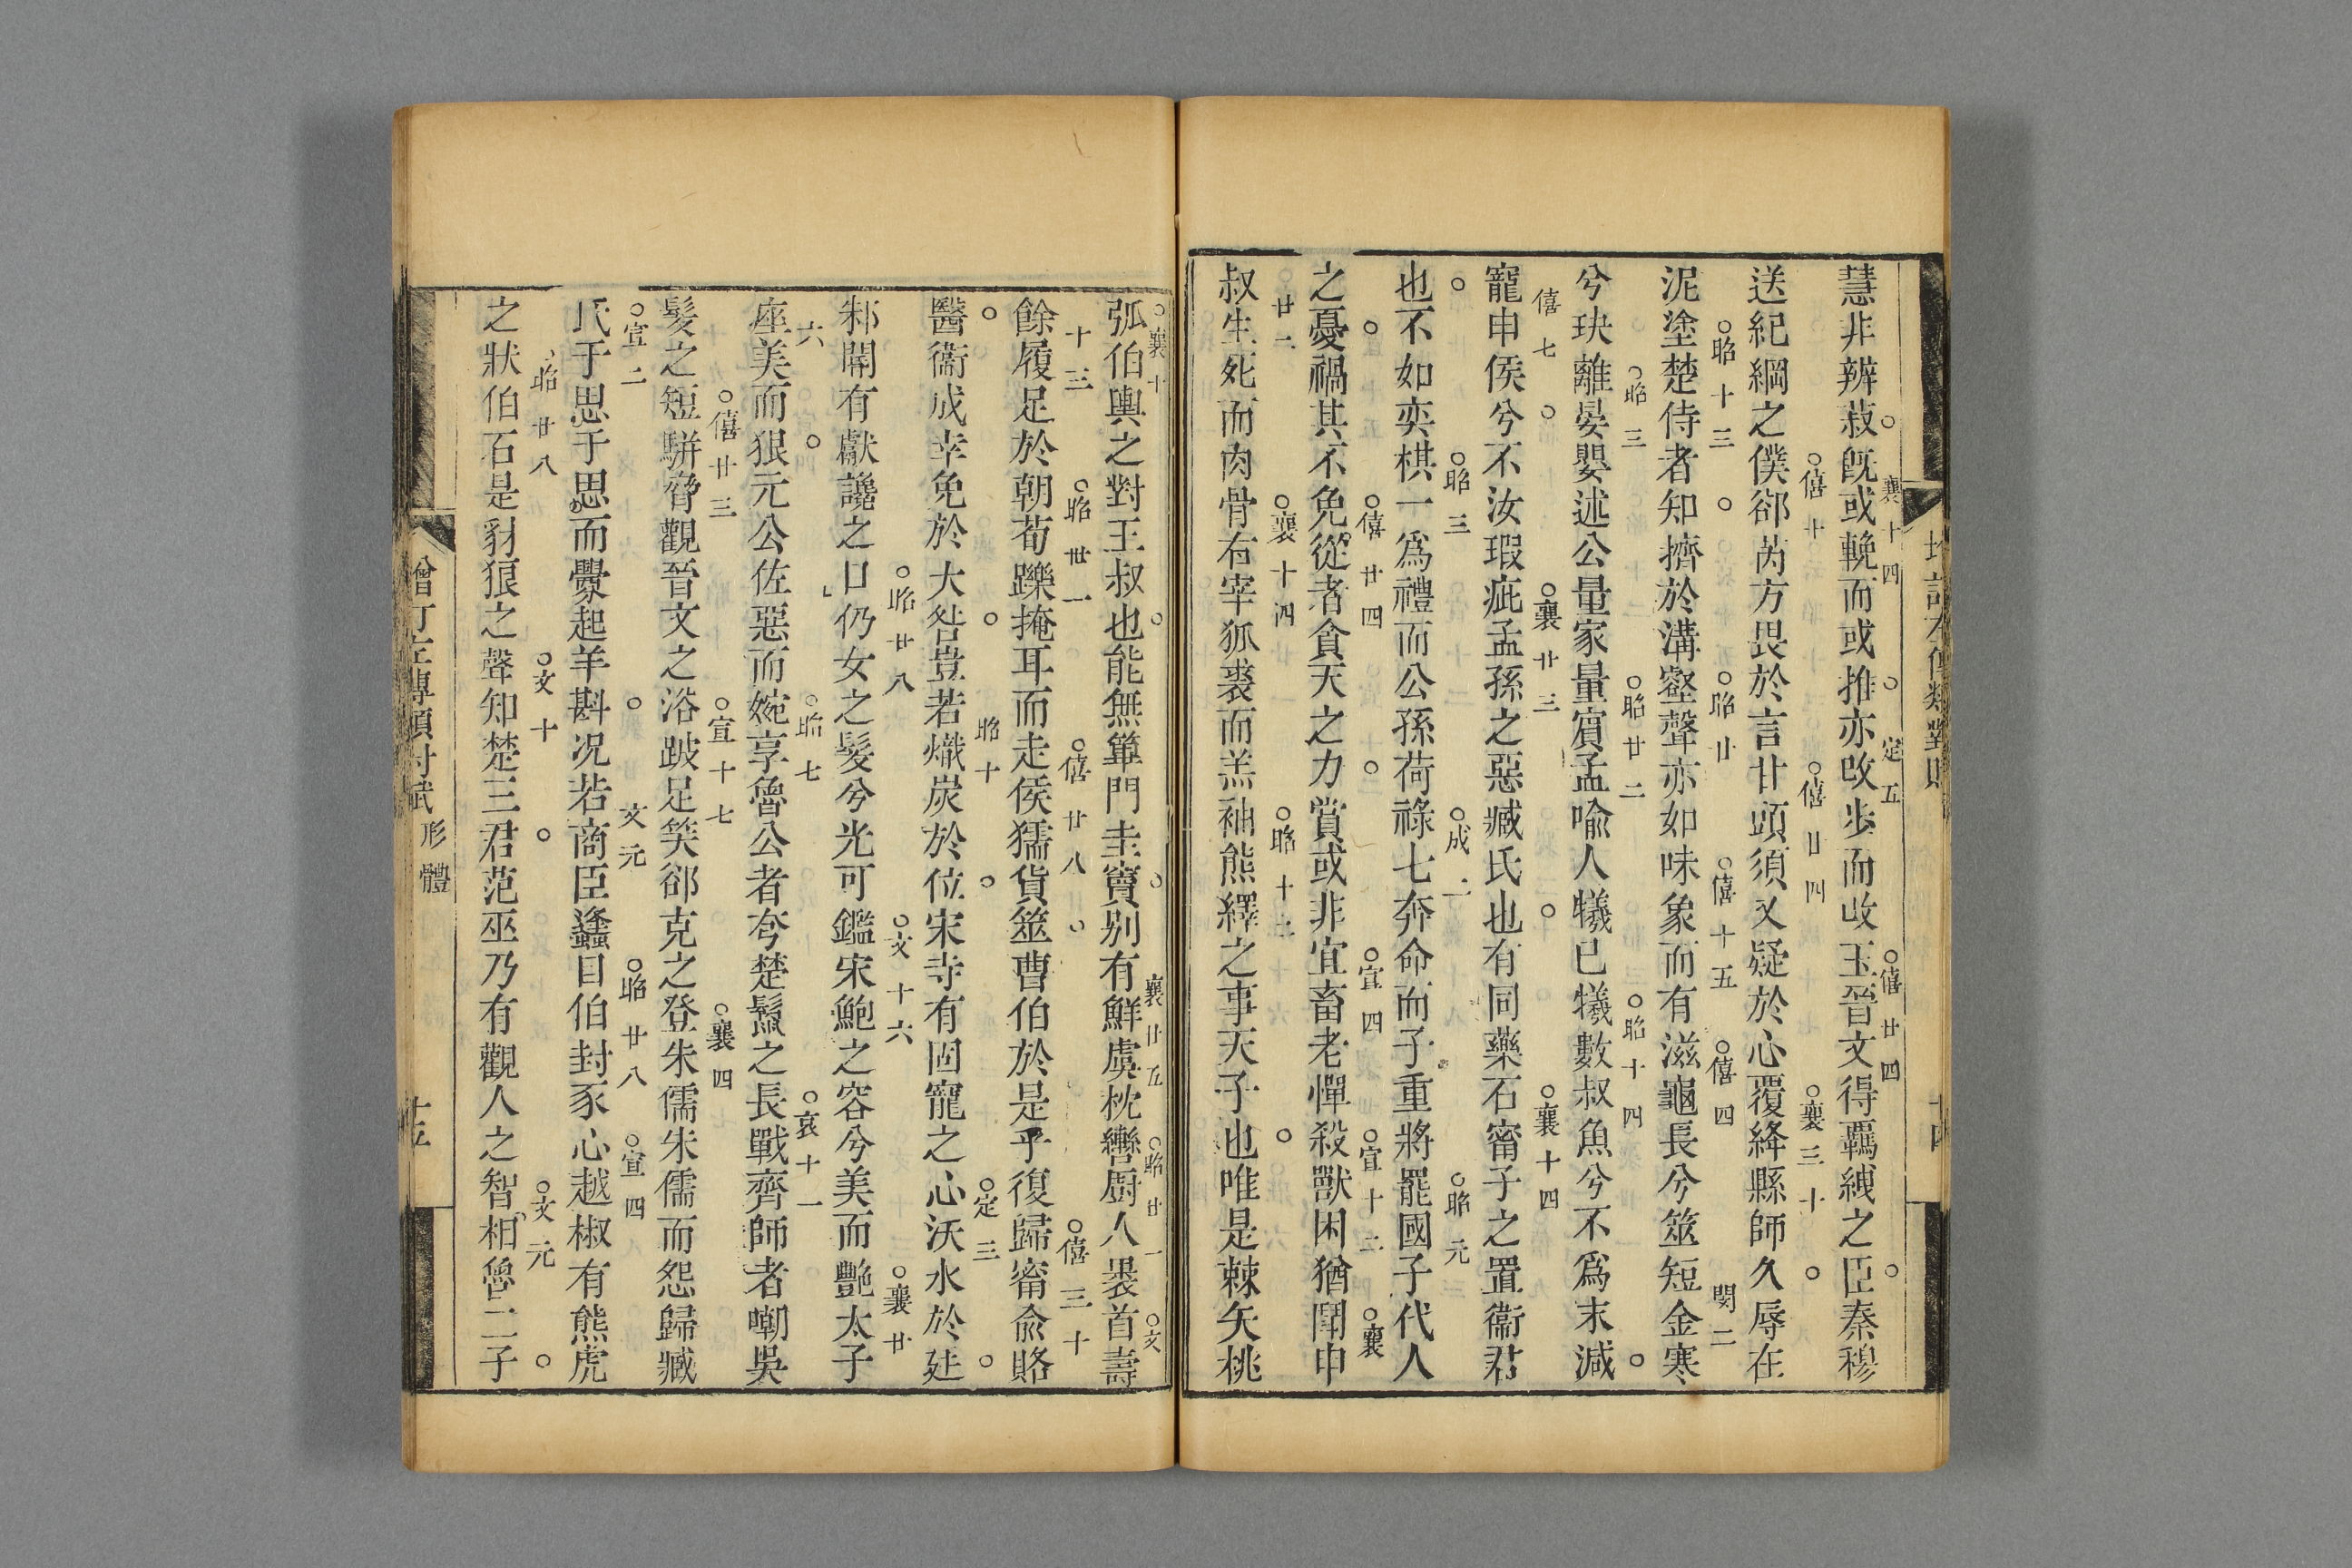 慧非辨菽旣或輓而或推亦改步而改玉晉文得覊絏之臣秦穆
襄十四 定五 僖廿四
送紀綱之僕郤芮方畏於言甘頭須又疑於心覆絳縣師久辱在
僖十 僖廿四 襄三十
泥塗楚侍者知擠於溝壑聲亦如味象而有滋龜長兮筮短金寒
昭十三 昭廿 僖十五 僖四 閔二
兮玦離晏嬰述公量家量賔孟喻人犧已犧數叔魚兮不爲末減
昭三 昭廿二 昭十四
寵申侯兮不汝瑕疵孟孫之惡臧氏也有同藥石甯子之置衞君
僖七 襄廿三 襄十四
也不如奕棋一爲禮而公孫荷祿七奔命而子重將罷國子代人
昭三 成 昭元
之憂禍其不免從者貪天之力賞或非宜畜老憚殺獸困猶鬪申
僖廿四 宣四 宣十二 襄
叔生死而肉骨右宰狐裘而羔袖熊繹之事天子也唯是棘矢桃
廿二 襄十四 昭十二
弧伯輿之對王叔也能無篳門圭竇别有鮮虞枕轡厨人裹首壽
襄十 襄廿五 昭廿一 文
餘履足於朝荀躒掩耳而走侯獳貨筮曹伯於是乎復歸甯兪賂
十三 昭卅一 僖廿八 僖三十
醫衞成幸免於大咎豈若熾炭於位宋寺有固寵之心沃水於廷
昭十 定三
邾閽有獻讒之口仍女之髮兮光可鑑宋鮑之容兮美而艷太子
昭廿八 文十六 襄廿
座美而狠元公佐惡而婉享魯公者夸楚鬣之長戰齊師者嘲吳
六 昭七 哀十一
髮之短駢脅觀晉文之浴跛足笑郤克之登朱儒朱儒而怨歸臧
僖廿三 宣十七 襄四
氏于思于思而釁起羊斟况若商臣蠭目伯封豕心越椒有熊虎
宣二 文元 昭廿八 宣四
之狀伯石是豺狼之聲知楚三君范巫乃有觀人之智相魯二子
昭廿八 文十 文元
形體